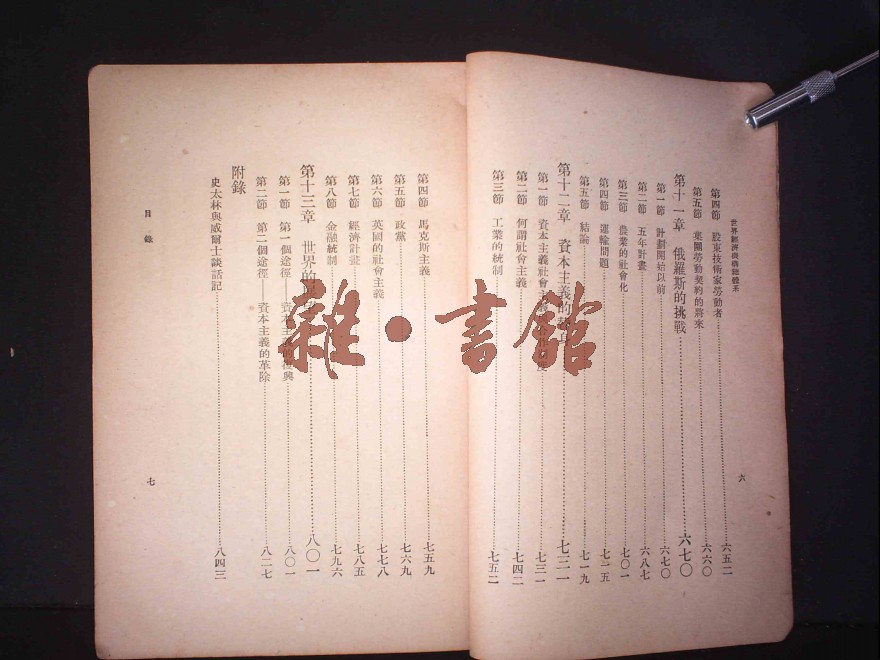 世界經濟機構總體系
第四節 股東技術家勞動者 六五二
第五節 集團勞動契約的將來 六六〇
第十一章 俄羅斯的挑戰 六七〇
第一節 計劃開始以前 六七〇
第二節 五年計畫 六八七
第三節 農業的社會化 七〇一
第四節 運輸問題 七一五
第五節 結論 七一九
第十二章 資本主義的 七三一
第一節 資本主義社會主 七三一
第二節 何謂社會主義 七四二
第三節 工業的統制 七五二
六
第四節 馬克斯主義 七五九
第五節 政黨 七六九
第六節 英國的社會主義 七七八
第七節 經濟計畫 七八五
第八節 金融統制 七九六
第十三章 世界的 八〇一
第一節 第一個途徑——資本主義的復興 八〇一
第二節 第二個途徑——資本主義的革除 八二七
附錄
史太林與威爾士談話記 八四三
目錄
七
雜·書館